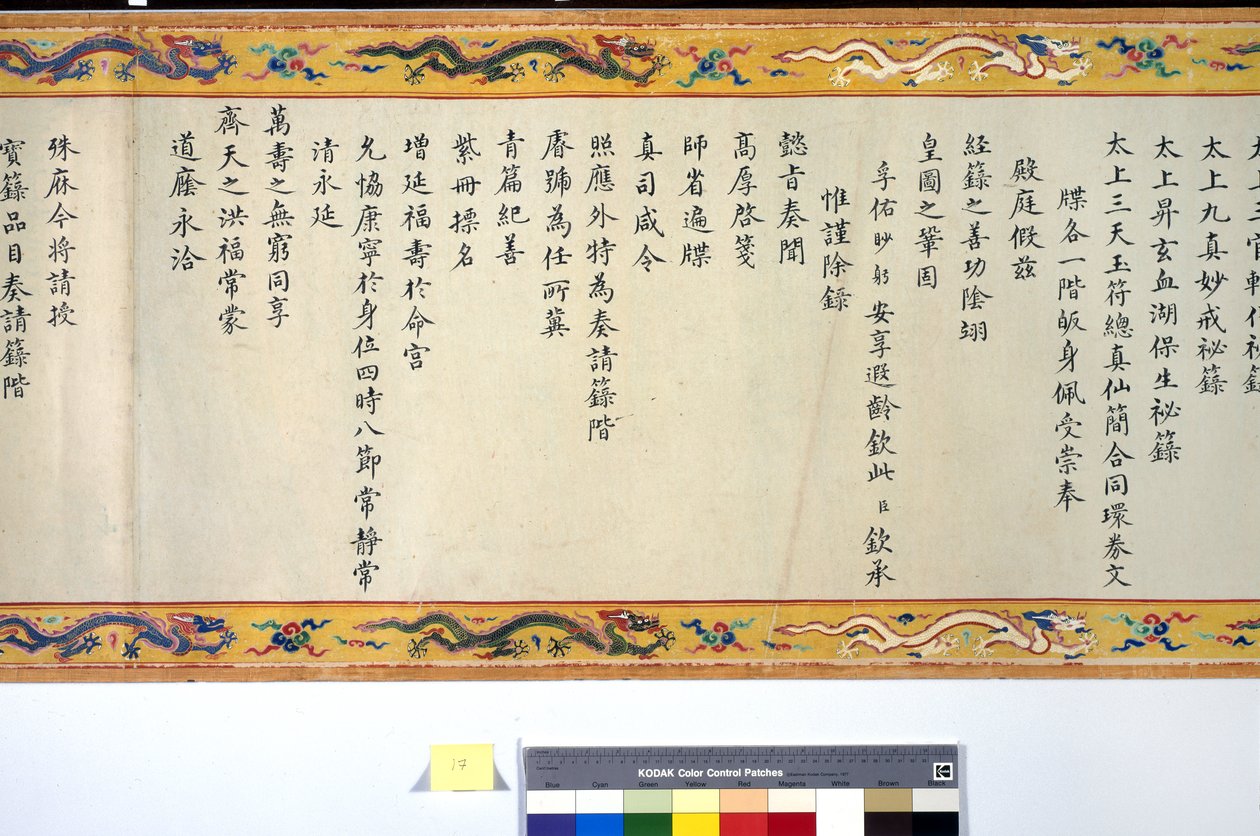 太上九真妙戒祕籙
太上昇玄血湖保生祕籙
太上三天玉符總真仙簡合同環券文
牒各一階皈身佩受崇奉
殿庭假茲
経籙之善功陰翊
皇圖之鞏固
孚佑眇躬安享遐齡欽此臣欽承
惟謹除錄
懿旨奏聞
髙厚啓箋
師省遍牒
真司咸令
照應外特為奏請籙階
眘號為任所冀
青篇紀善
紫冊摽名
增延福壽於命宮
允恊康寧於身位四時八節常靜常
清永延
萬壽之無窮同享
齊天之洪福常蒙
道廕永洽
殊庥今将請授
寳籙品目奏請籙階
17
KODAK Color Control Patches
Blue Cyan Green Yellow Red Magenta White Brown Black